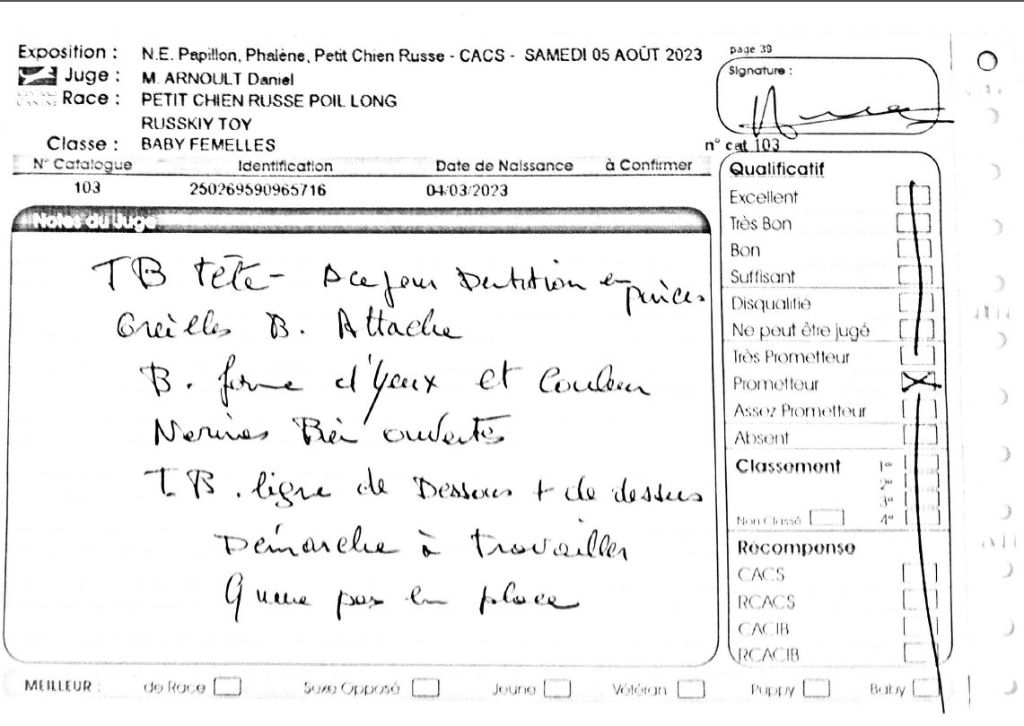 Exposition : N.E. Papillon, Phalène, Petit Chien Russe - CACS - SAMEDI 05 AOÛT 2023
Juge : M. ARNOULT Daniel
Race : PETIT CHIEN RUSSE POIL LONG
RUSSKIY TOY
Classe : BABY FEMELLES
page 39
Signature :
n° cat 103
N° Catalogue Identification Date de Naissance à Confirmer
103 250269590965716 04/03/2023
Notes du Juge
TB tête - A ce jour Dentition en pinces
Oreilles B. Attache
B. forme d'Yeux et Couleur
Narines Bien ouvertes
T.B. ligne de Dessous + de dessus
Démarche à travailler
Queue pas en place
Qualificatif
Excellent
Très Bon
Bon
Suffisant
Disqualifié
Ne peut être jugé
Très Prometteur
Prometteur
Assez Prometteur
Absent
Classement 1er
2e
3e
Non Classé 4e
Récompense
CACS
RCACS
CACIB
RCACIB
MEILLEUR : de Race Sexe Opposé Jeune Vétéran Puppy Baby